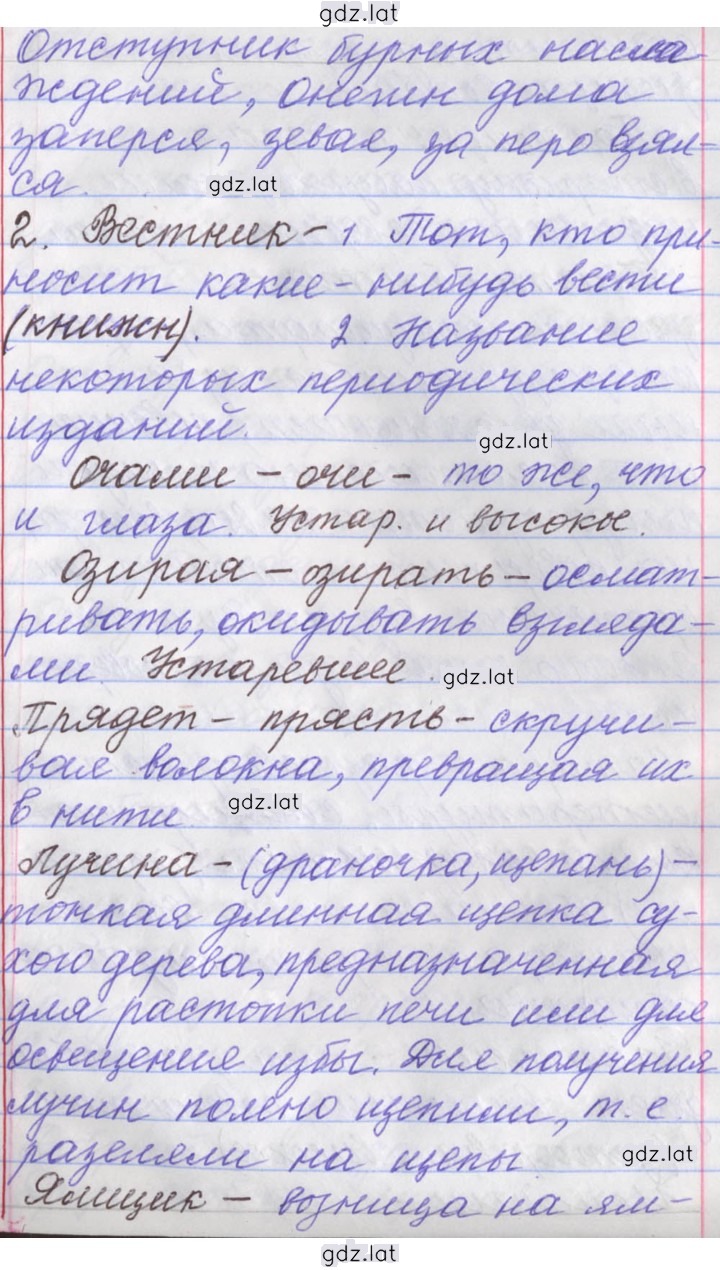 gdz.lat
Отступник бурных насла-
ждений, Онегин дома
заперся, зевая, за перо взял-
ся.
gdz.lat
2. Вестник - 1 Тот, кто при-
носит какие-нибудь вести
(книжн). 2. Название
некоторых периодических
изданий.
gdz.lat
Очами - очи - то же, что
и глаза. Устар. и высокое.
Озирая - озирать - осмат-
ривать, окидывать взгляда-
ми. Устаревшее.
gdz.lat
Прядет - прясть - скручи-
вая волокна, превращая их
в нити
gdz.lat
Лучина - (драночка, щепань) -
тонкая длинная щепка су-
хого дерева, предназначенная
для растопки печи или для
освещения избы. Для получения
лучин полено щепили, т.е.
разделяли на щепы
gdz.lat
Ямщик - возница на ям-
gdz.lat